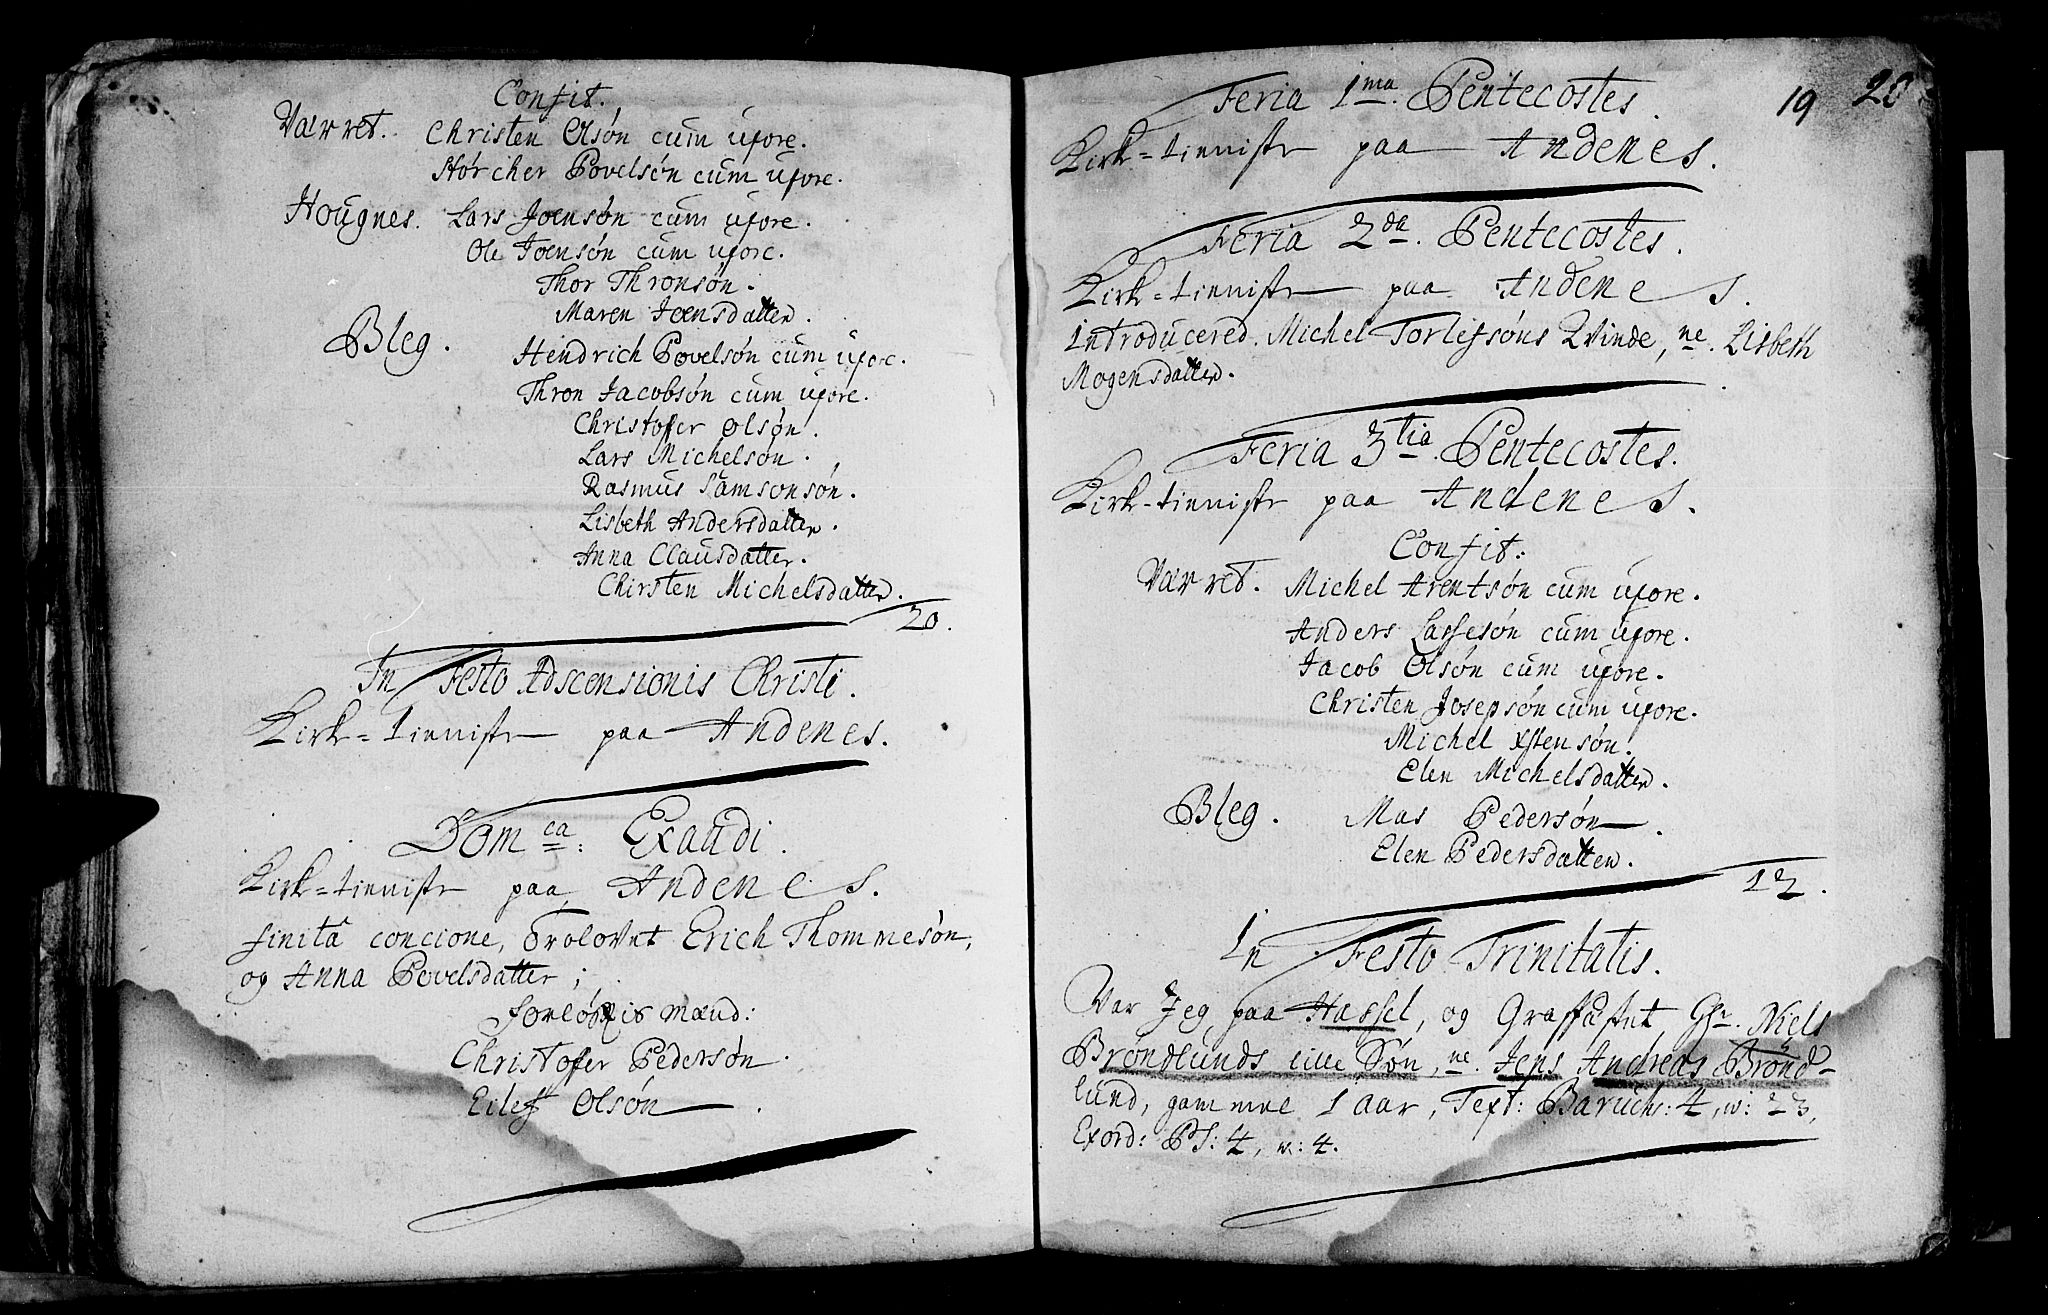 Confit.
Værret. Christen Olsøn cum uxore.
Hørcher Povelsøn cum uxore.
Hougnes. Lars Joensøn cum uxore.
Ole Joensøn cum uxore.
Thor Thronsøn.
Maren Joensdatter.
Bleg. Hendrich Povelsøn cum uxore.
Thron Jacobsøn cum uxore.
Christofer Olsøn.
Lars Michelsøn.
Rasmus Samsonsøn.
Lisbeth Andersdatter.
Anna Clausdatter.
Chirsten Michelsdatter.
20.
In Festo Adscensionis Christi.
Kirk-tienniste paa Andenes.
Dom ca: Exaudi.
Kirk-tienniste paa Andenes.
finitâ concione, trolovet Erich Thommesøn,
og Anna Povelsdatter;
forløftis mænd:
Christofer Pedersøn.
Eilef Olsøn.
19 20
Feria 1ma. Pentecostes.
Kirk-tienniste paa Andenes.
Feria 2da. Pentecostes.
Kirk-tienniste paa Andenes.
Introducered Michel Torleifsøns Qvinde, ne. Lisbeth
Mogensdatter.
Feria 3tia Pentecostes.
Kirk-tienniste paa Andenes.
Confit:
Værret. Michel Arentsøn cum uxore.
Anders Lassesøn cum uxore.
Jacob Olsøn cum uxore.
Christen Josepsøn cum uxore.
Michel Ystensøn.
Elen Michelsdatter.
Bleg. Mas Pedersøn.
Elen Pedersdatter.
12.
In Festo Trinitatis.
Var Jeg paa Hassel, og Graffästet Hr. Niels
Brøndlunds lille Søn, ne. Jens Andreas Brønd-
lund, gammel 1 aar, Text: Baruch: 4, v: 23,
Exord: Ps: 4, v: 4.